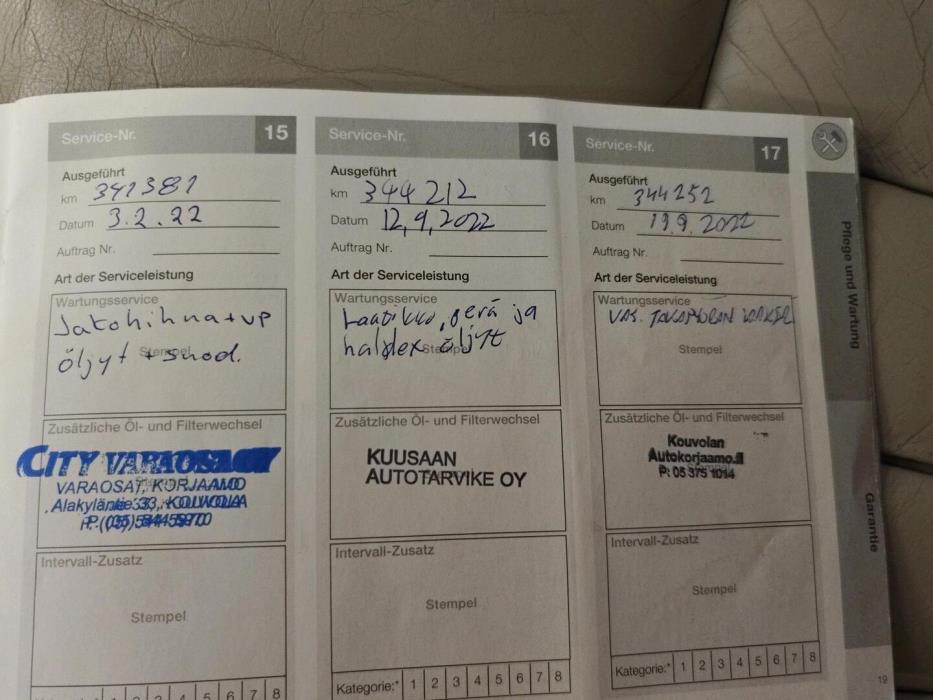 Service-Nr. 15
Ausgeführt
km 341381
Datum 3.2.22
Auftrag Nr.
Art der Serviceleistung
Wartungsservice
Jakohihna + vp
Stempel
öljyt + suod.
Zusätzliche Öl- und Filterwechsel
CITY VARAOSA
VARAOSAT, KORJAAMO
Alakyläntie 33, KOUVOLA
Intervall-Zusatz
Stempel
4 5 6 7 8
Service-Nr. 16
Ausgeführt
km 344212
Datum 12,9,2022
Auftrag Nr.
Art der Serviceleistung
Wartungsservice
Laatikko, perä ja
haldex öljyt
Stempel
Zusätzliche Öl- und Filterwechsel
KUUSAAN
AUTOTARVIKE OY
Intervall-Zusatz
Stempel
Kategorie:* 1 2 3 4 5 6 7 8
Service-Nr. 17
Ausgeführt
km 344252
Datum 19.9.2022
Auftrag Nr.
Art der Serviceleistung
Wartungsservice
VAS. TAKAPYÖRÄN
Stempel
Zusätzliche Öl- und Filterwechsel
Kouvolan
Autokorjaamo
P: 05 375 1014
Intervall-Zusatz
Stempel
Kategorie:* 1 2 3 4 5 6 7 8
Pflege und Wartung
Garantie
19